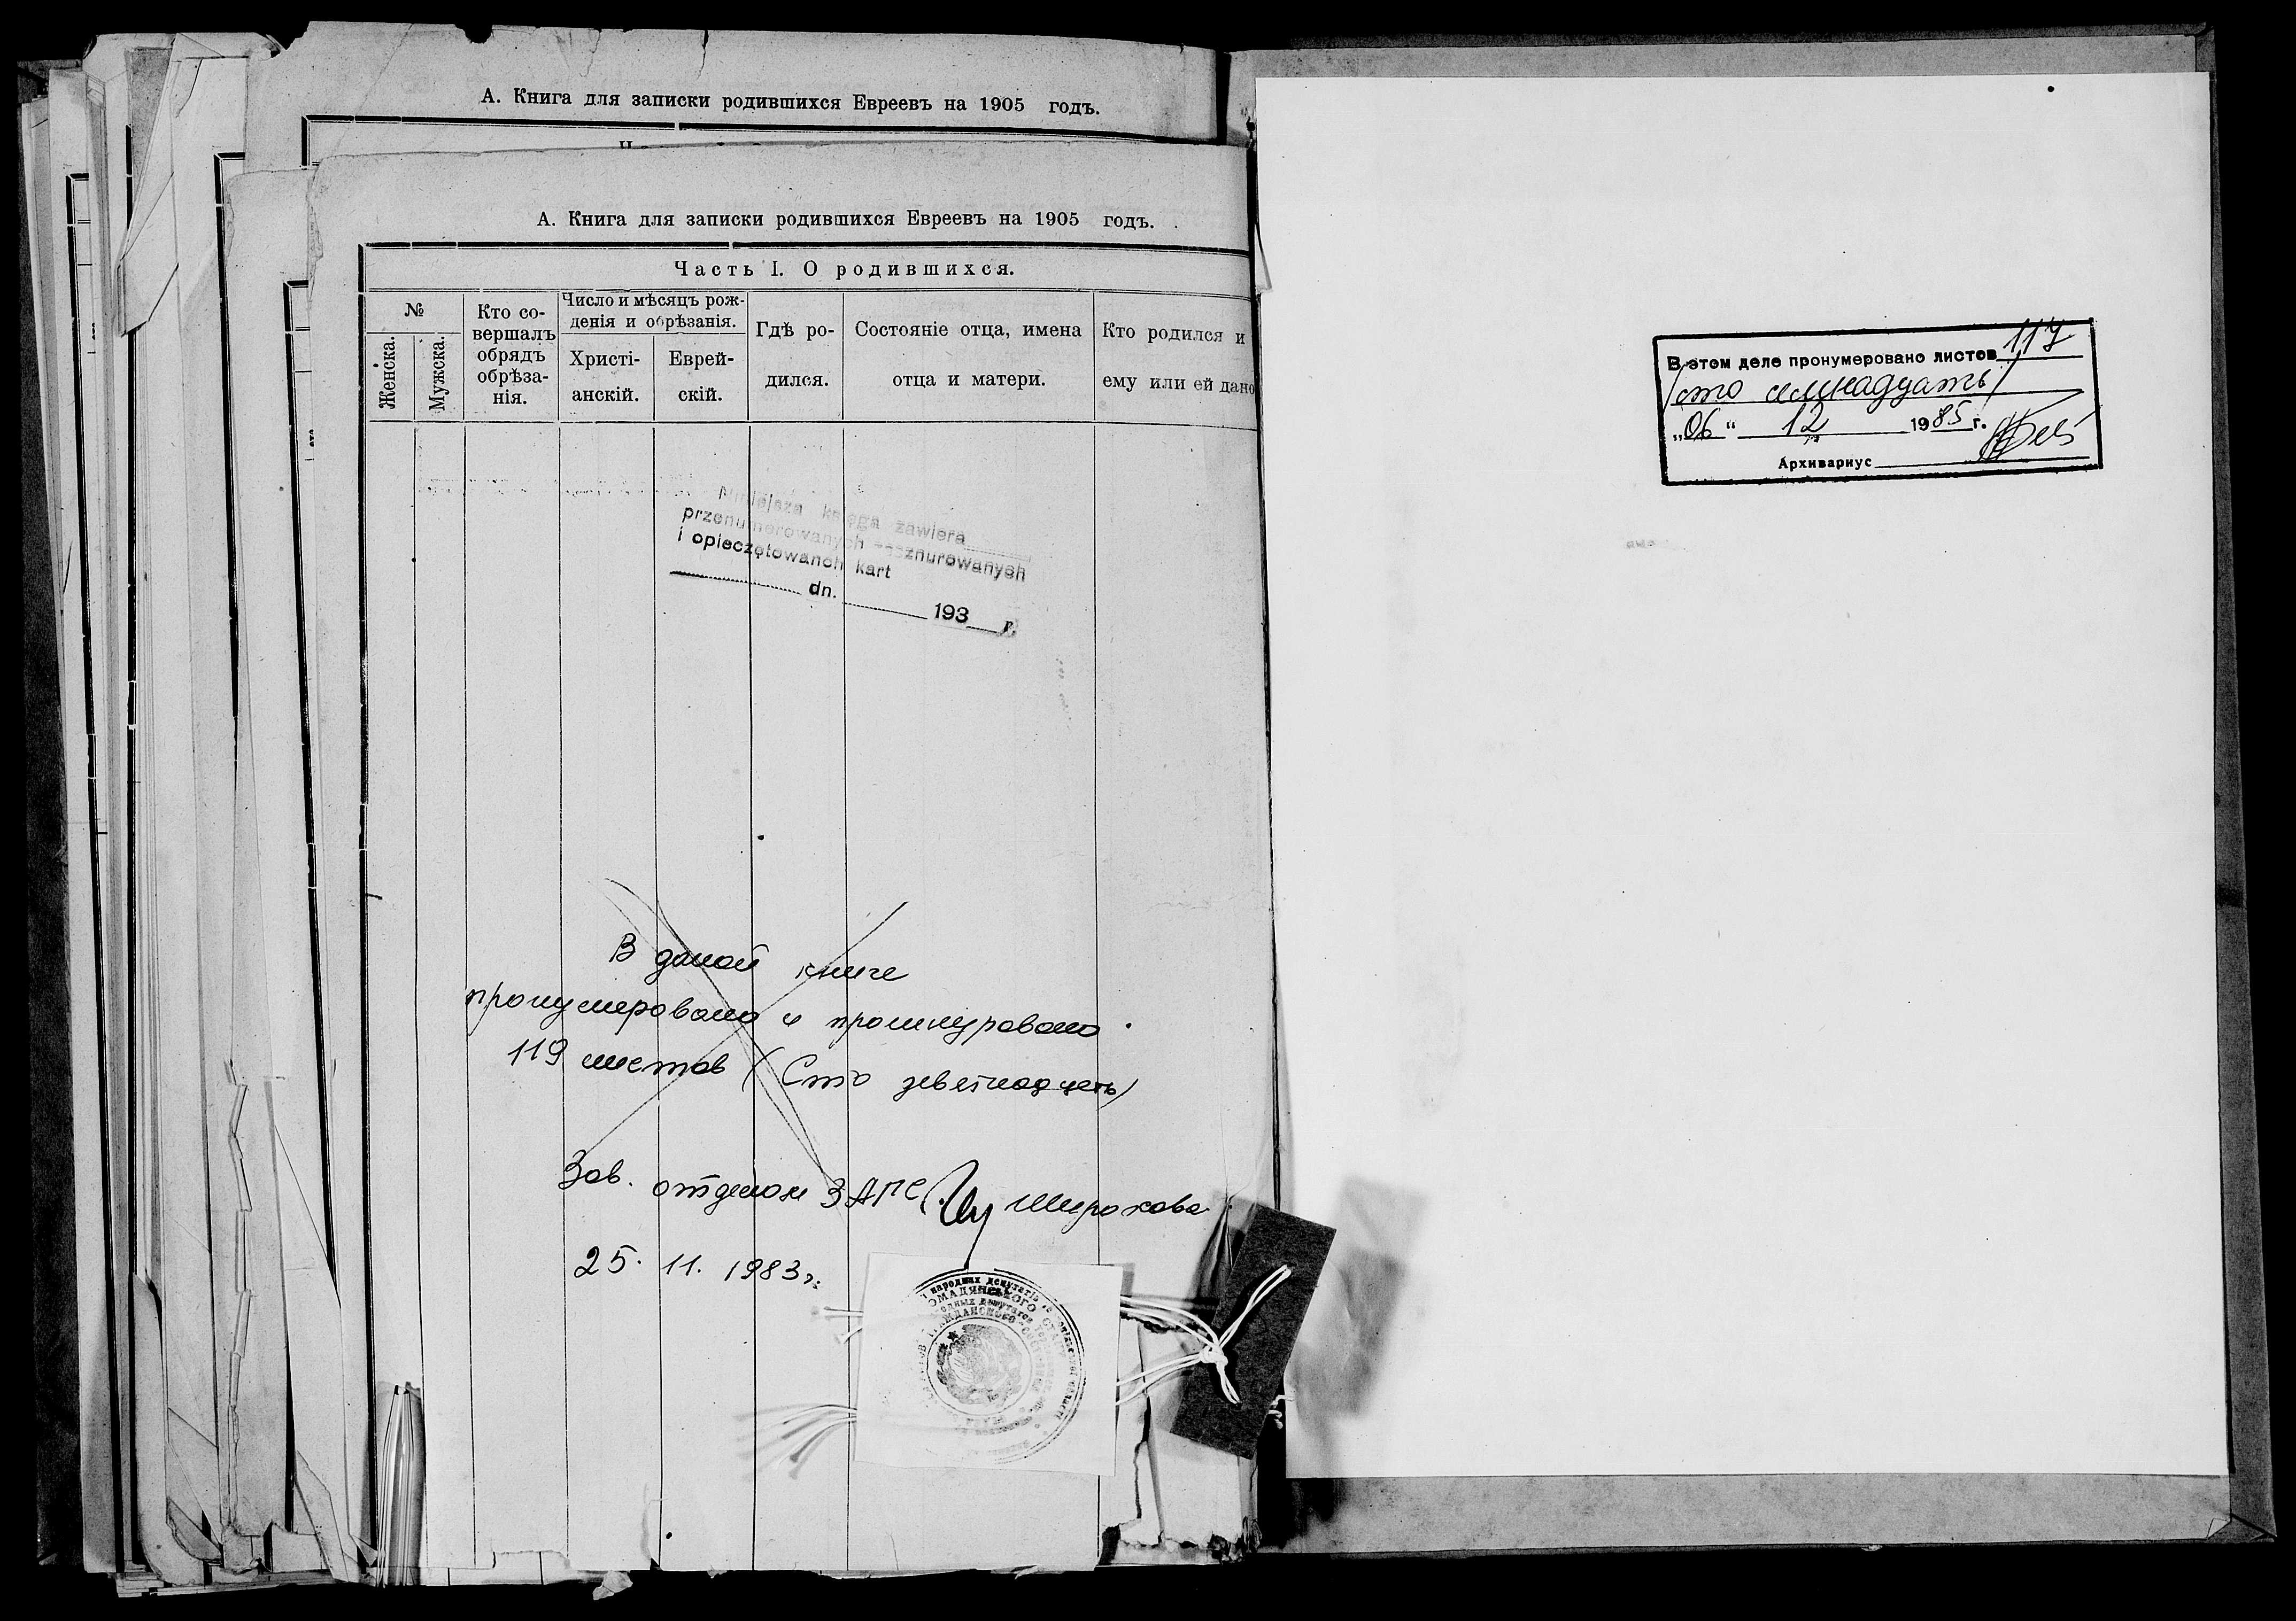 А. Книга для записки родившихся Евреевъ на 1905 годъ.
А. Книга для записки родившихся Евреевъ на 1905 годъ.
Часть I. О родившихся.
№
Женска.
Мужска.
Кто со-
вершалъ
обрядъ
обрѣза-
нія.
Число и мѣсяцъ рож-
денія и обрѣзанія.
Христі-
анскій.
Еврей-
скій.
Гдѣ ро-
дился.
Состояніе отца, имена
отца и матери.
Кто родился и
ему или ей дано
Niniejsza księga zawiera
przenumerowanych zasznurowanych
i opieczętowanch kart
dn. 193 r.
В даной книге
пронумеровано и прошнуровано
119 листов (Сто девятнадцеть)
Зав. отделом ЗАГС Широкова
25. 11. 1983 г.
народних депутатів
ГРОМАДЯНСЬКОГО
В этом деле пронумеровано листов 117
(сто семнадцать)
„06“ 12 1985 г.
Архивариус